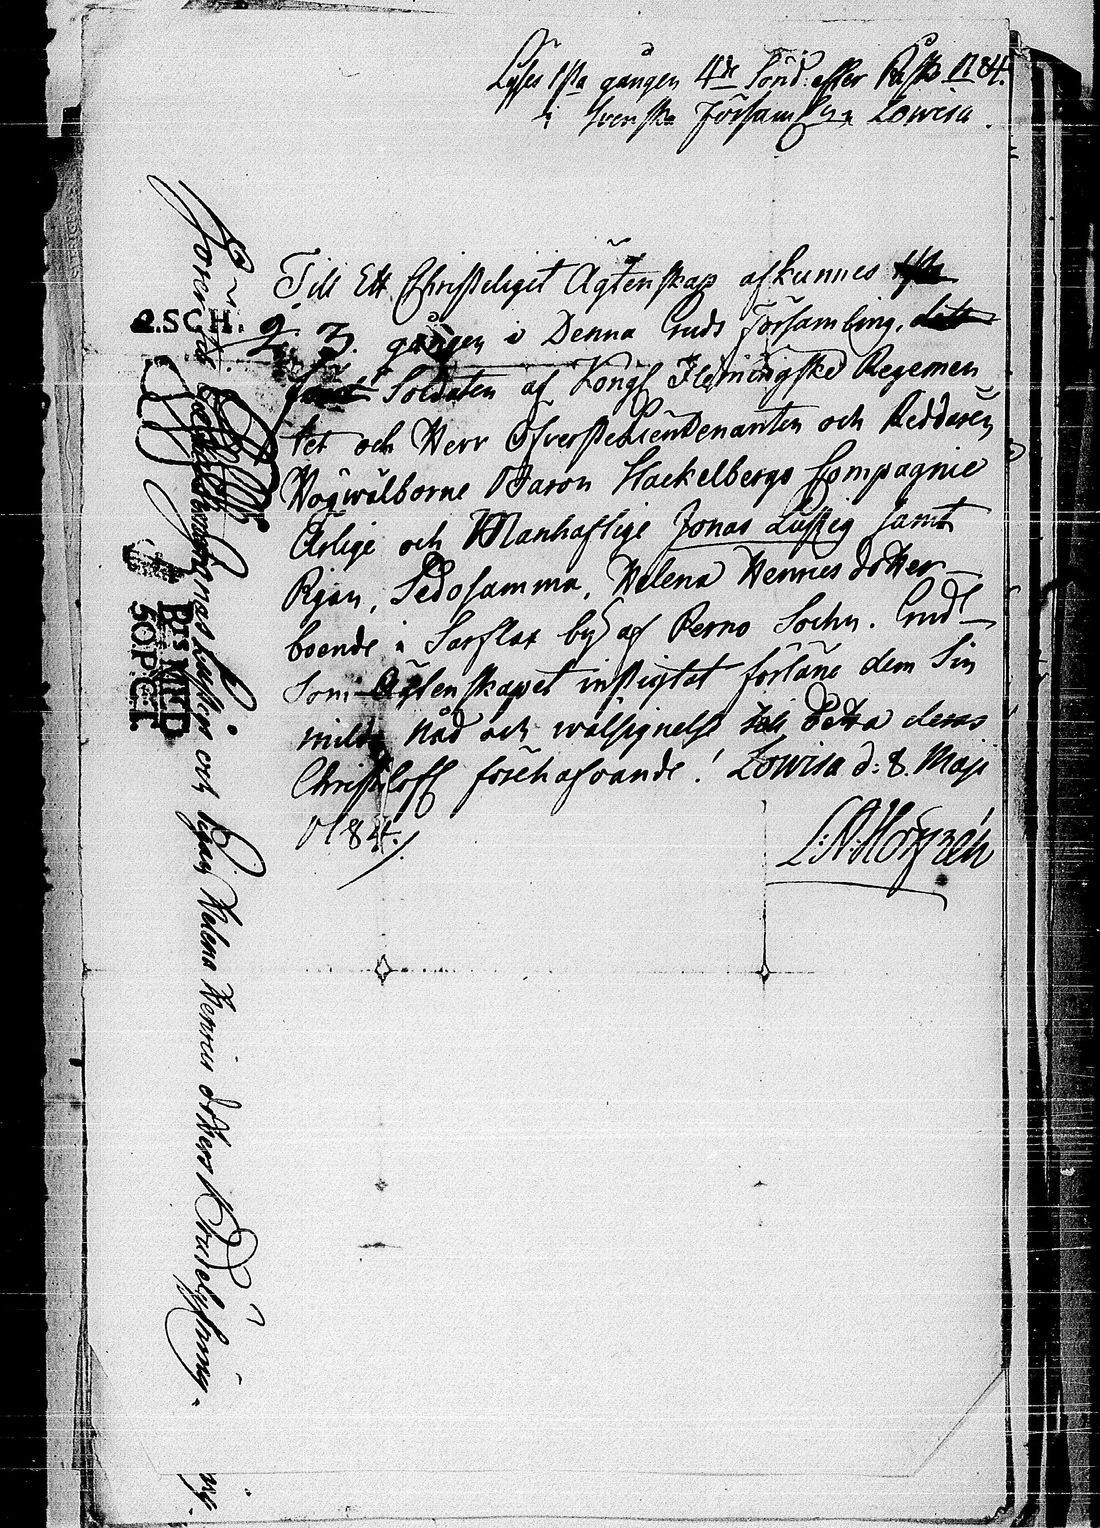 Lyses 1sta gången 4de Sönd. efter Påsk 1784.
i Svenska Församl Lowisa.
Till Ett Christeligit Ägtenskap afkunnes
2. 3. gången i Denna Guds Församling,
Soldaten af Kongl Flemingske Regemen
tet och Herr Öfverstelieutenanten och Riddaren
Högwälborne Baron Stackelbergs Compagnie
Ärlige och Manhaftige Jonas Lustig samt
Pigan, Sedosamma, Helena Henricsdotter
boende i Sarflax by af Perno Sochn. Gud
som Ägtenskapet instigtat förläne dem Sin
milda Nåd och wälsignelse till Detta deras
Christeloff. förehafvande! Lowisa d: 8. Maji
1784.
2.SCH.
50PCT.
Jonas Lustigs och Pigan Helena Henrics dotters Lysning.